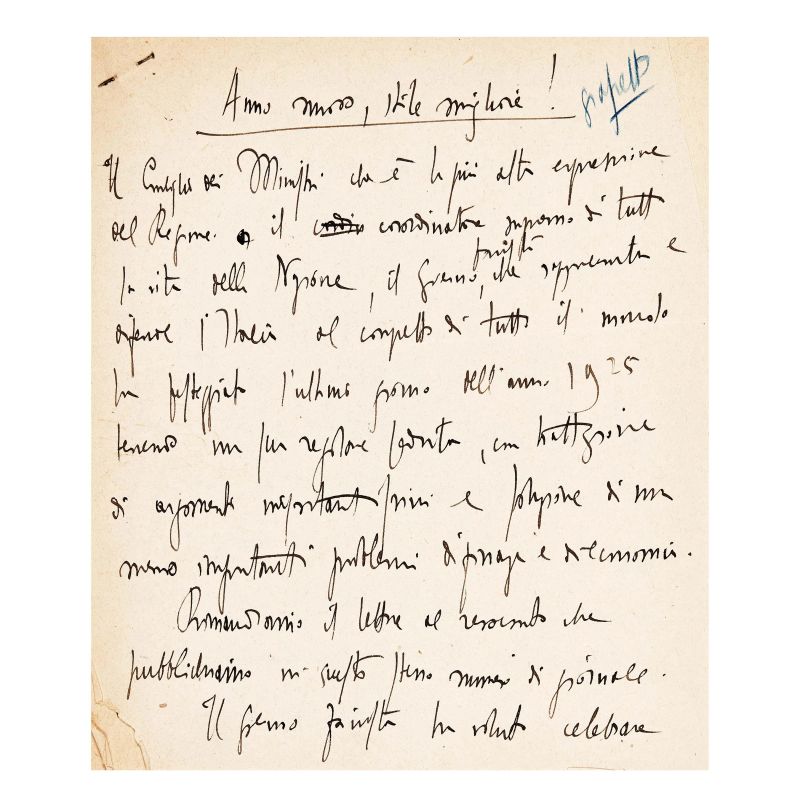 Anno nuovo, stile migliore!
grassetto
Il Consiglio dei Ministri che è la più alta espressione
del Regime e il coordinatore supremo di tutta
fascista
la vita della Nazione, il Governo, che rappresenta e
difende l'Italia al cospetto di tutto il mondo
ha festeggiato l'ultimo giorno dell'anno 1925
tenendo una sua regolare seduta, con trattazione
di argomenti importantissimi e soluzione di non
meno importanti problemi di finanza e di economia.
Rimandiamo il lettore al resoconto che
pubblichiamo in questo stesso numero di giornale.
Il governo fascista ha voluto celebrare